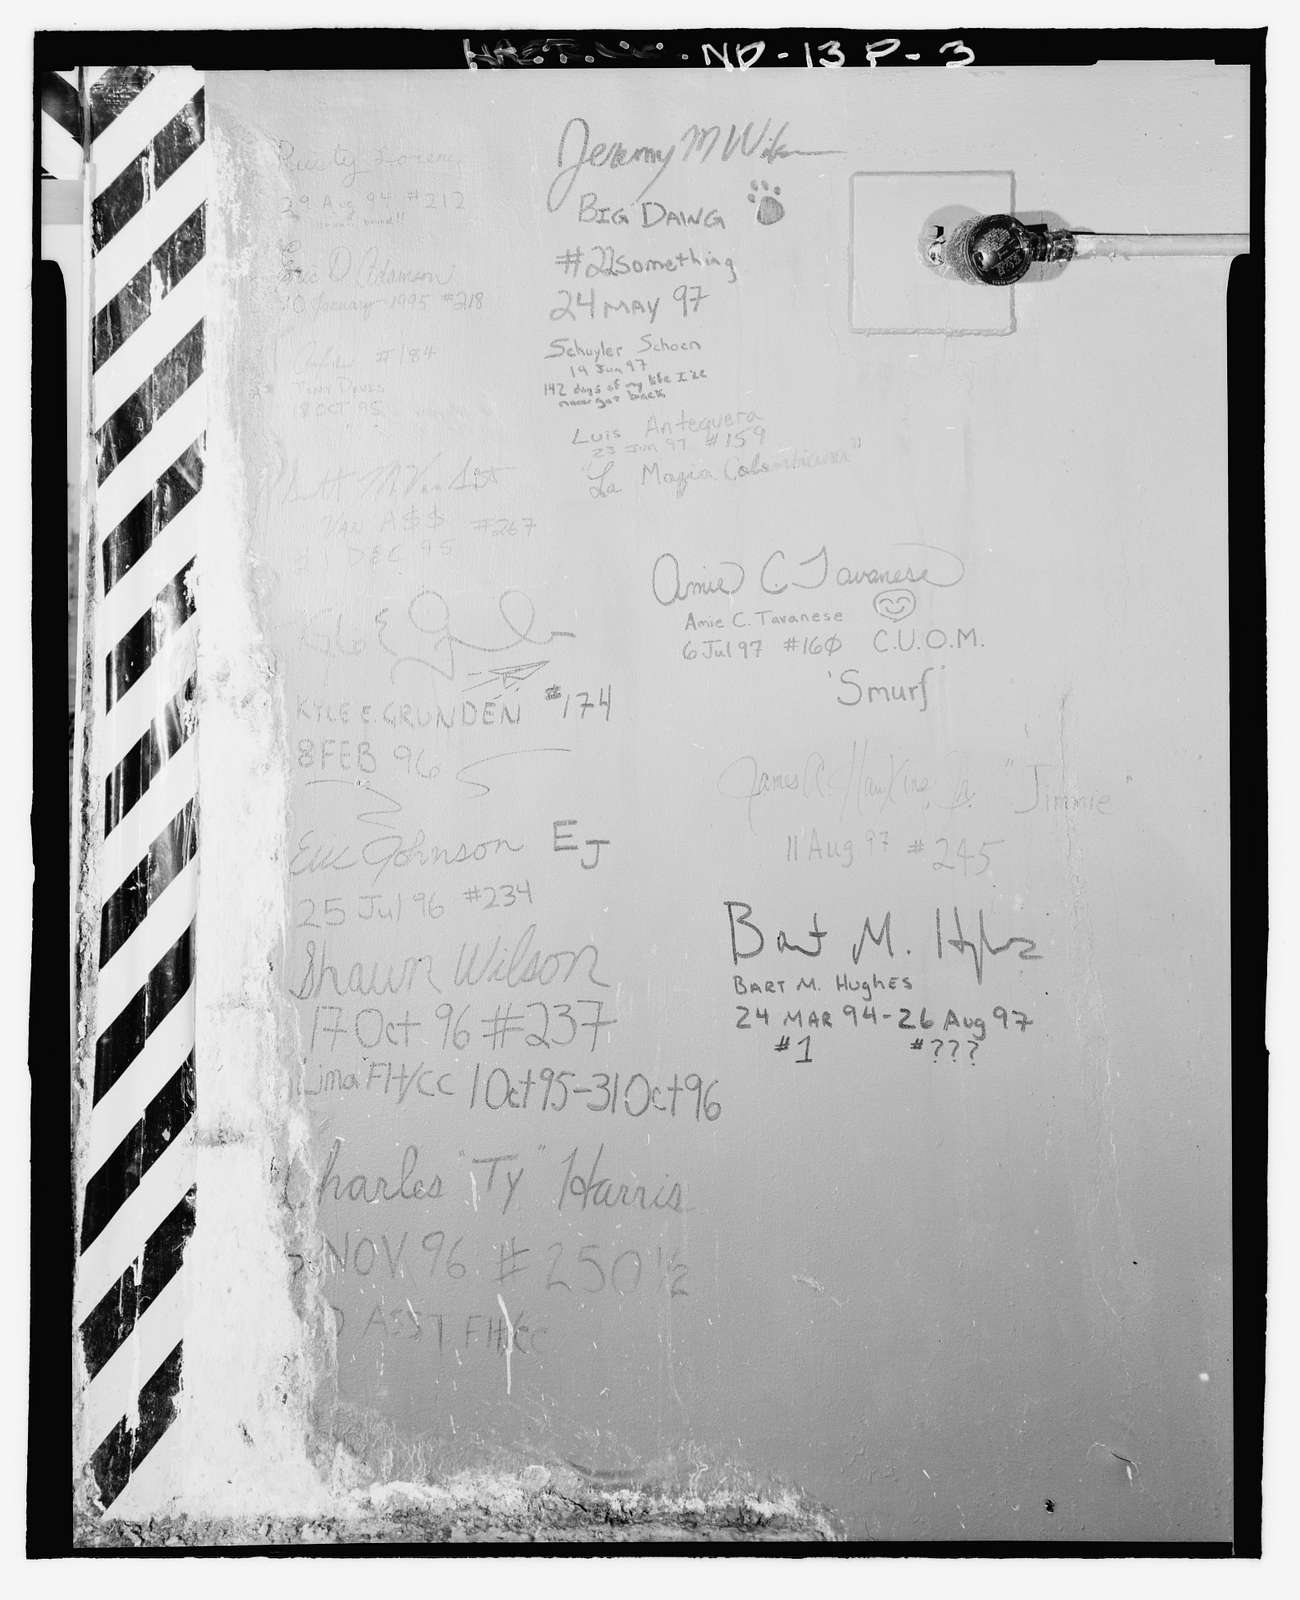 ND-13 P-3
29 Aug 94 #212
Eric D. Adamson
10 January 1995 #218
#184
18 OCT 95
VAN A$$ #267
21 DEC 95
KYLE E. GRUNDEN #174
8 FEB 96
Eric Johnson EJ
25 Jul 96 #234
Shawn Wilson
17 Oct 96 #237
Lima Flt/CC 1 Oct 95-31 Oct 96
Charles "Ty" Harris
NOV 96 #250 1/2
ASST Flt/CC
Jeremy M Wilson
BIG DAWG
#22something
24 MAY 97
Schuyler Schoen
19 Jun 97
142 days of my life I'll
never get back
Luis Antequera
23 Jun 97 #159
"La Magia Colombiana"
Amie C. Tavanese
Amie C. Tavanese
6 Jul 97 #160 C.U.O.M.
"Smurf"
James A. Hawkins Jr. "Jimmie"
11 Aug 97 #245
Bart M. Hughes
BART M. HUGHES
24 MAR 94-26 Aug 97
#1 #???